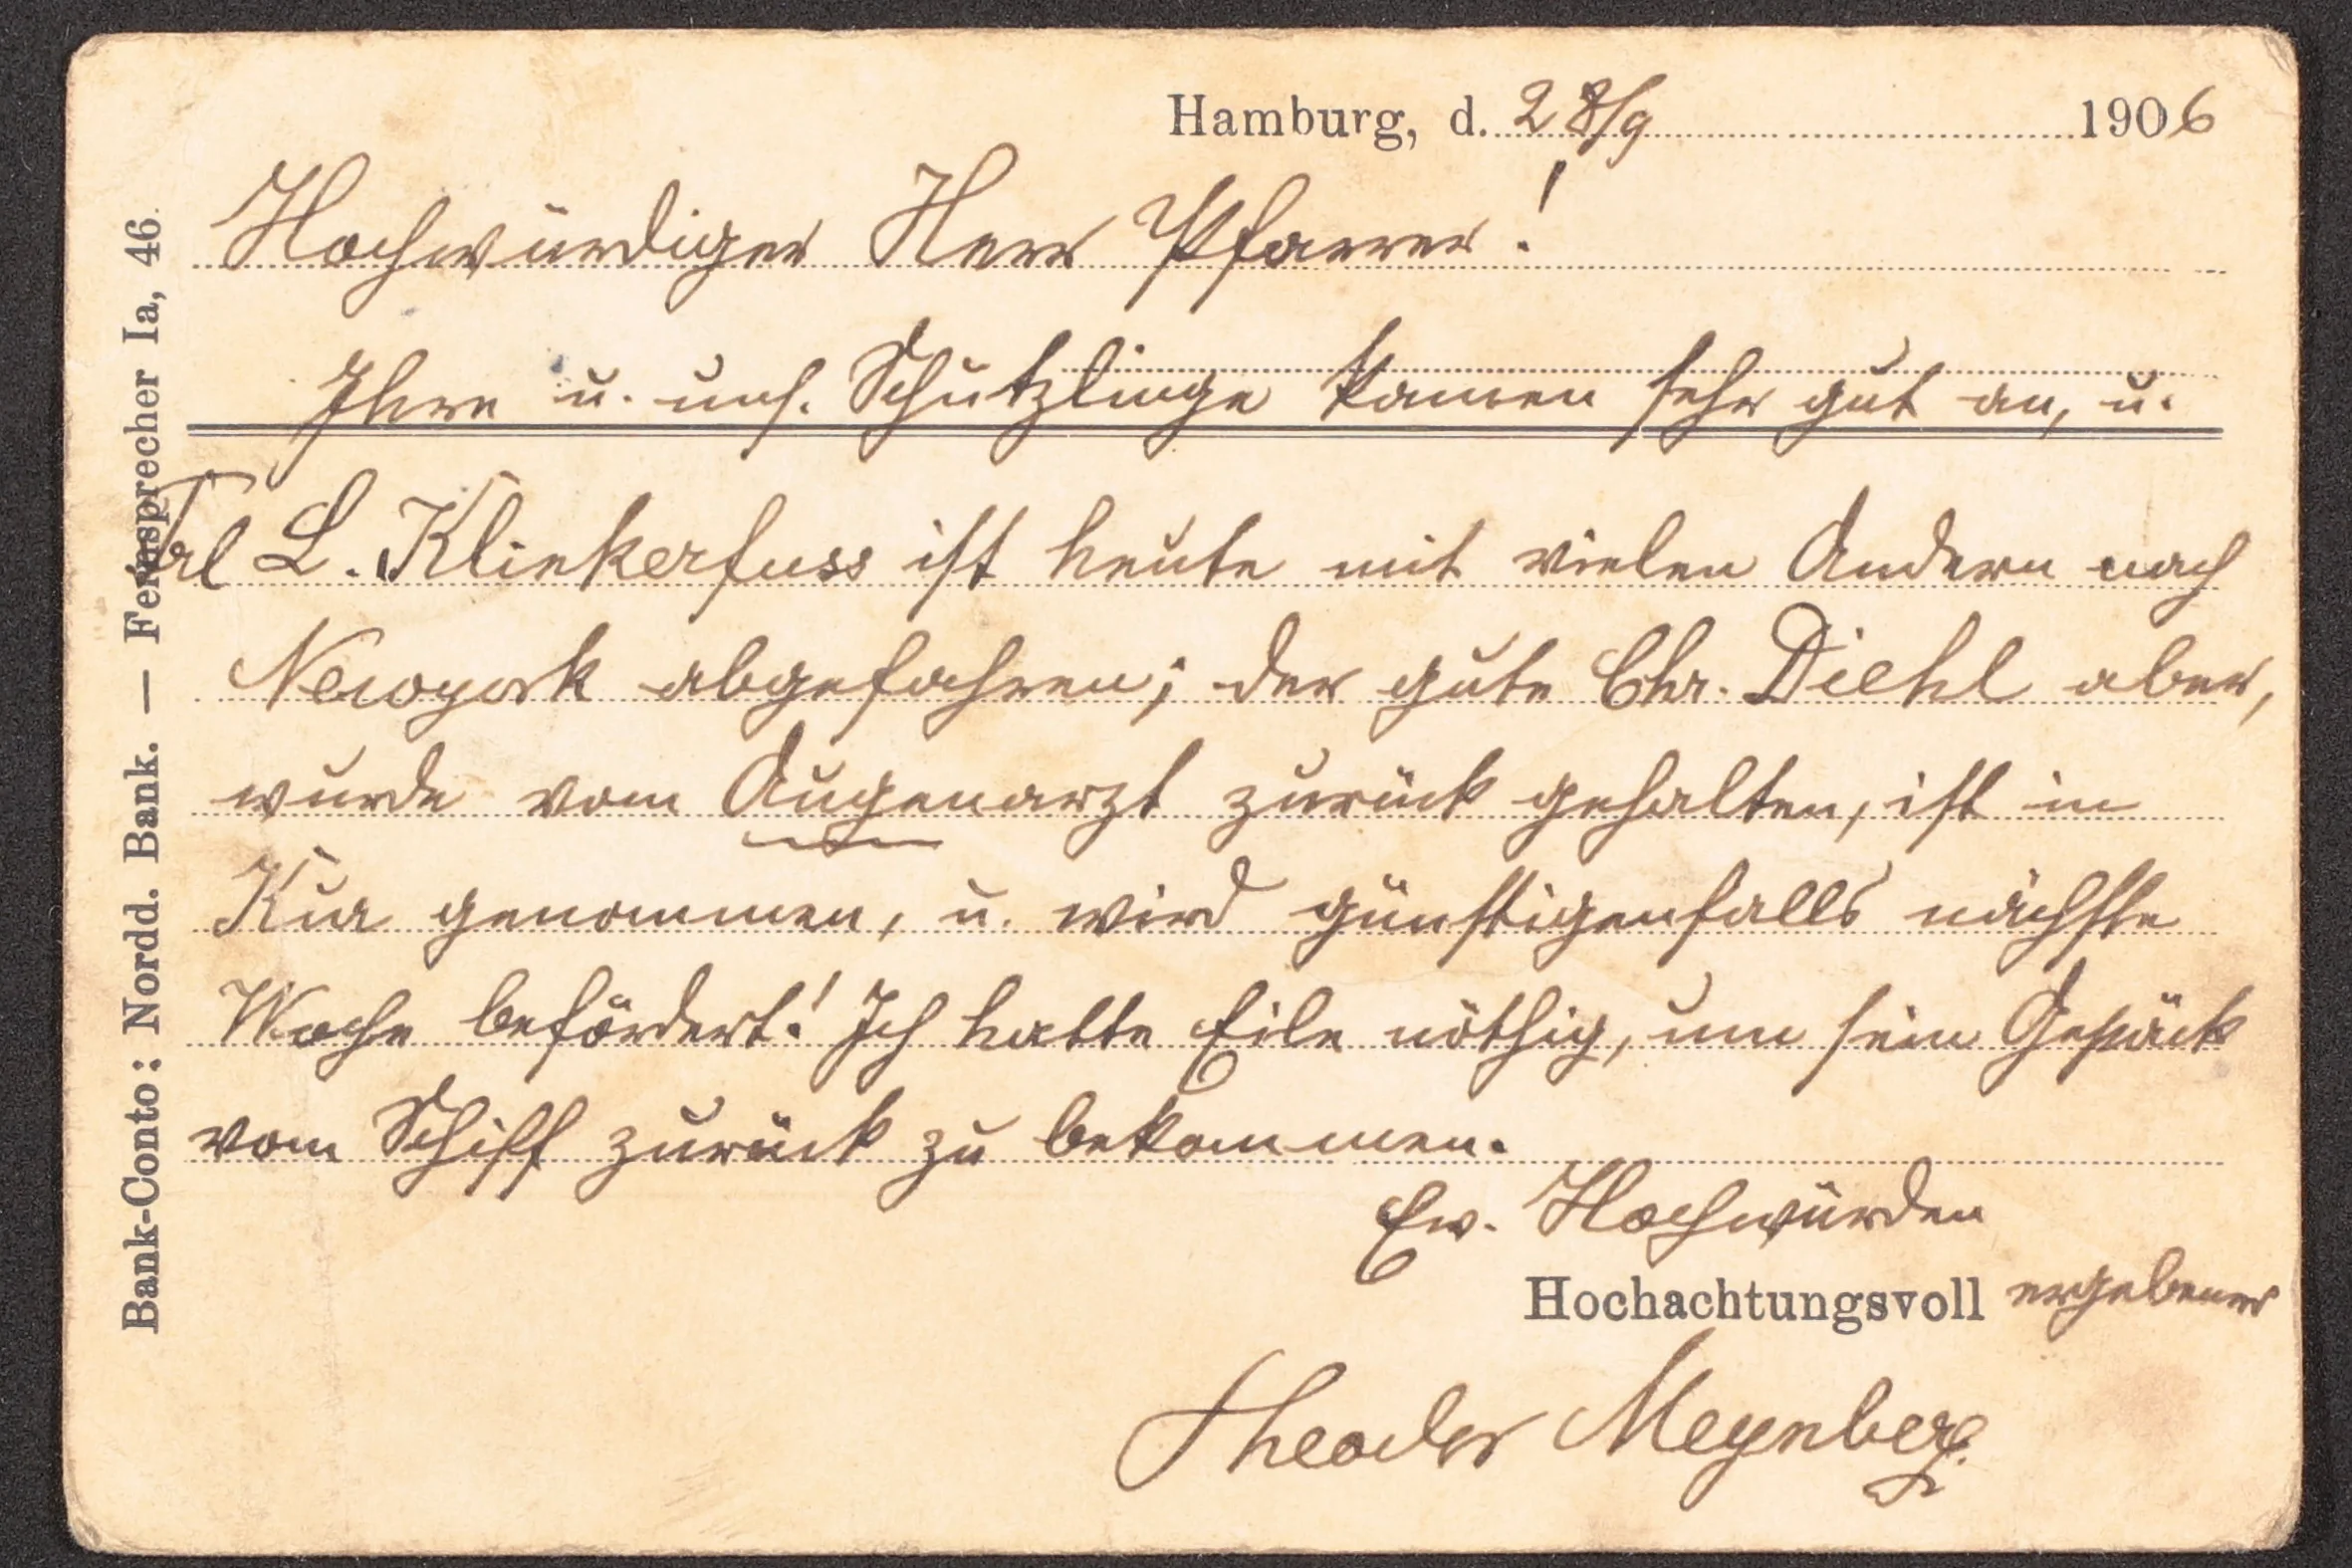 Hamburg, d. 28/9 1906
Hochwürdiger Herr Pfarrer!
Ihre u. uns. Schützlinge kamen sehr gut an, u.
Frl L. Klinkerfuss ist heute mit vielen Andern nach
Newyork abgefahren; der gute Chr. Diehl aber,
wurde vom Augenarzt zurück gehalten, ist in
Kur genommen, u. wird günstigenfalls nächste
Woche befördert! Ich hatte Eile nöthig, um sein Gepäck
vom Schiff zurück zu bekommen.
Ew. Hochwürden
Hochachtungsvoll ergebener
Theodor Meynberg.
Bank-Conto: Nordd. Bank. — Fernsprecher Ia, 46.